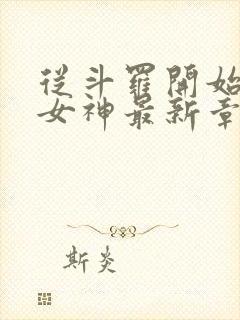 從斗羅開始
女神最新章
斯炎